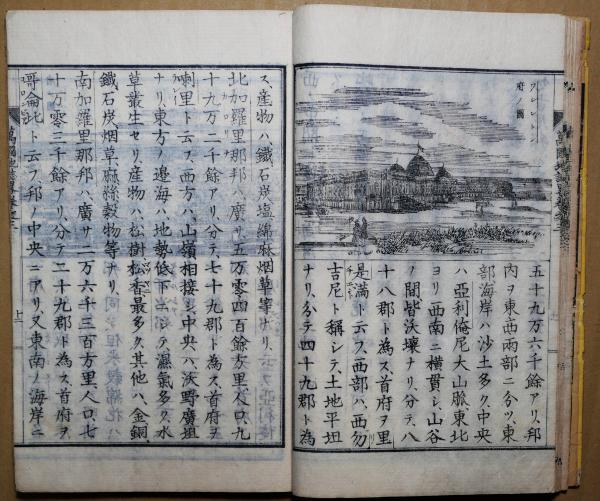 府ノ圖
五十九万六千餘アリ、邦
内ヲ東西兩部ニ分ツ、東
部海岸ハ沙土多ク、中央
ハ亞利俺尼大山脈東北
ヨリ西南ニ横貫シ、山谷
ノ間皆沃壤ナリ、分テ、八
十八郡ト為ス、首府ヲ里
是滿ト云フ、西部ハ、西勿
吉尼ト稱シテ、土地平坦
ナリ、分テ四十九郡ト為
ス、産物ハ鐵石炭塩綿麻烟草等ナリ、
北加羅里那邦ハ廣サ五万零四百餘方里、人口、九
十九万二千餘アリ、分テ、七十九郡ト為ス、首府ヲ
喇里ト云フ、西方ハ山嶺相接シ、中央ハ沃野廣坦
ナリ、東方ノ邊海ハ地勢低下ニシテ濕氣多ク、水
草叢生セリ、産物ハ松樹松香最多ク、其他ハ、金銅、
鐵石炭烟草、麻絲穀物等ナリ、
南加羅里那邦ハ廣サ二万六千三百方里、人口、七
十万零三千餘アリ、分テ二十九郡ト為ス、首府ヲ
哥論比ト云フ、邦ノ中央ニアリ、又東南ノ海岸ニ